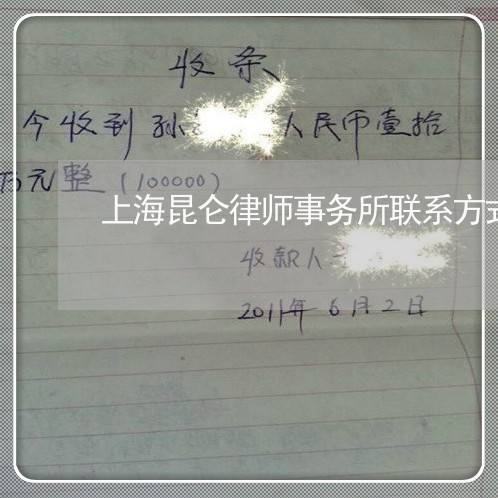 收条
今收到孙 人民币壹拾
万元整(100000)
上海昆仑律师事务所联系方式
收款人
2011年6月2日